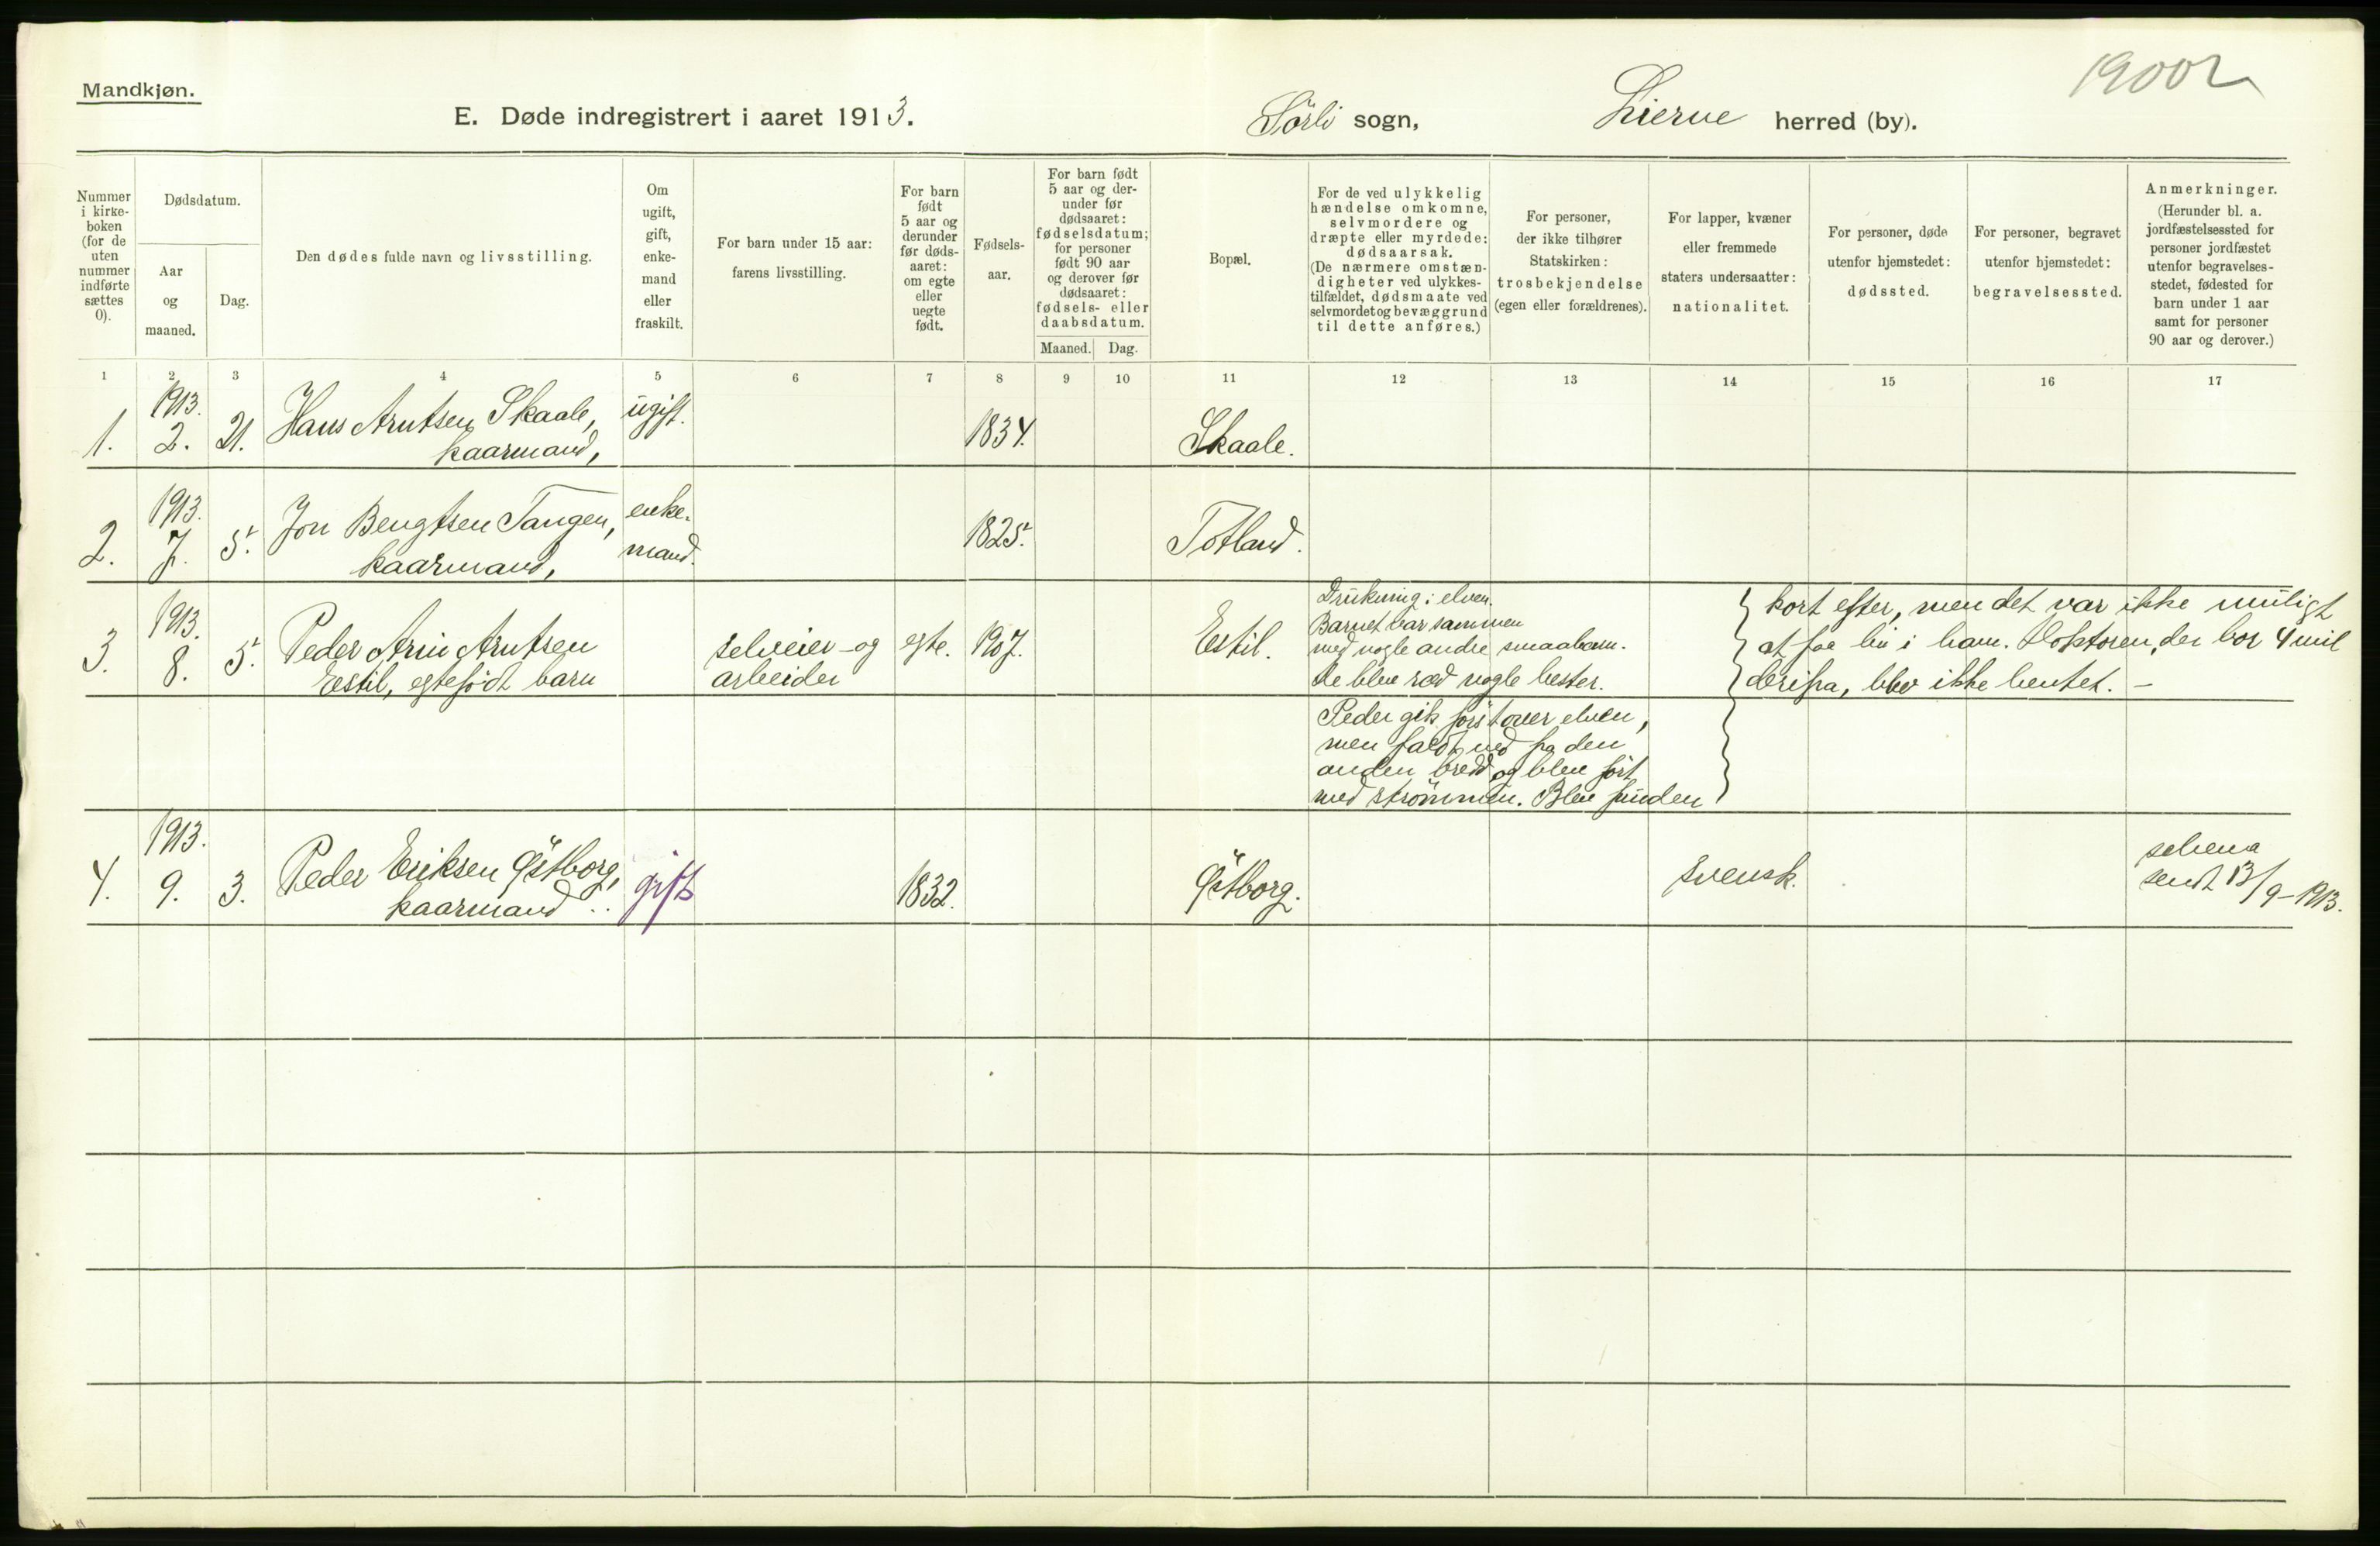 19002
Mandkjøn.
E. Døde indregistrert i aaret 1913. Sörli sogn, Lierne herred (by).
Nummer
i kirke-
boken
(for de
uten
nummer
indførte
sættes
0).
Dødsdatum.
Aar
og
maaned.
Dag.
Den dødes fulde navn og livsstilling.
Om
ugift,
gift,
enke-
mand
eller
fraskilt.
For barn under 15 aar:
farens livsstilling.
For barn
født
5 aar og
derunder
før døds-
aaret:
om egte
eller
uegte
født.
Fødsels-
aar.
For barn født
5 aar og der-
under før
dødsaaret:
fødselsdatum;
for personer
født 90 aar
og derover før
dødsaaret:
fødsels- eller
daabsdatum.
Maaned. Dag.
Bopæl.
For de ved ulykkelig
hændelse omkomne,
selvmordere og
dræpte eller myrdede:
dødsaarsak.
(De nærmere omstæn-
digheter ved ulykkes-
tilfældet, dødsmaate ved
selvmordet og bevæggrund
til dette anføres.)
For personer,
der ikke tilhører
Statskirken:
trosbekjendelse
(egen eller forældrenes).
For lapper, kvæner
eller fremmede
staters undersaatter:
nationalitet.
For personer, døde
utenfor hjemstedet:
dødssted.
For personer, begravet
utenfor hjemstedet:
begravelsessted.
Anmerkninger.
(Herunder bl. a.
jordfæstelsessted for
personer jordfæstet
utenfor begravelses-
stedet, fødested for
barn under 1 aar
samt for personer
90 aar og derover.)
1 2 3 4 5 6 7 8 9 10 11 12 13 14 15 16 17
1. 1913. 2. 21. Hans Arntsen Skaale, ugift. 1834. Skaale.
kaarmand,
2. 1913. 7. 5. Jon Bengtsen Tangen, enke- 1825. Totland.
kaarmand, mand.
3. 1913. 8. 5. Peder Arni Arntsen selveier og egte. 1907. Estil.
Estil, egtefödt barn arbeider
Drukning i elven.
Barnet var sammen
med nogle andre smaabarn.
De blev ræd nogle hester.
Peder gik först over elven,
men faldt ned fra den
anden bredd og blev fört
med strömmen. Blev funden
kort efter, men det var ikke muligt
at faa liv i ham. Doktoren, der bor 4 mil
derifra, blev ikke hentet. –
4. 1913. 9. 3. Peder Eriksen Østborg, gift 1832. Østborg. svensk.
kaarmand
schema
sendt 13/9-1913.